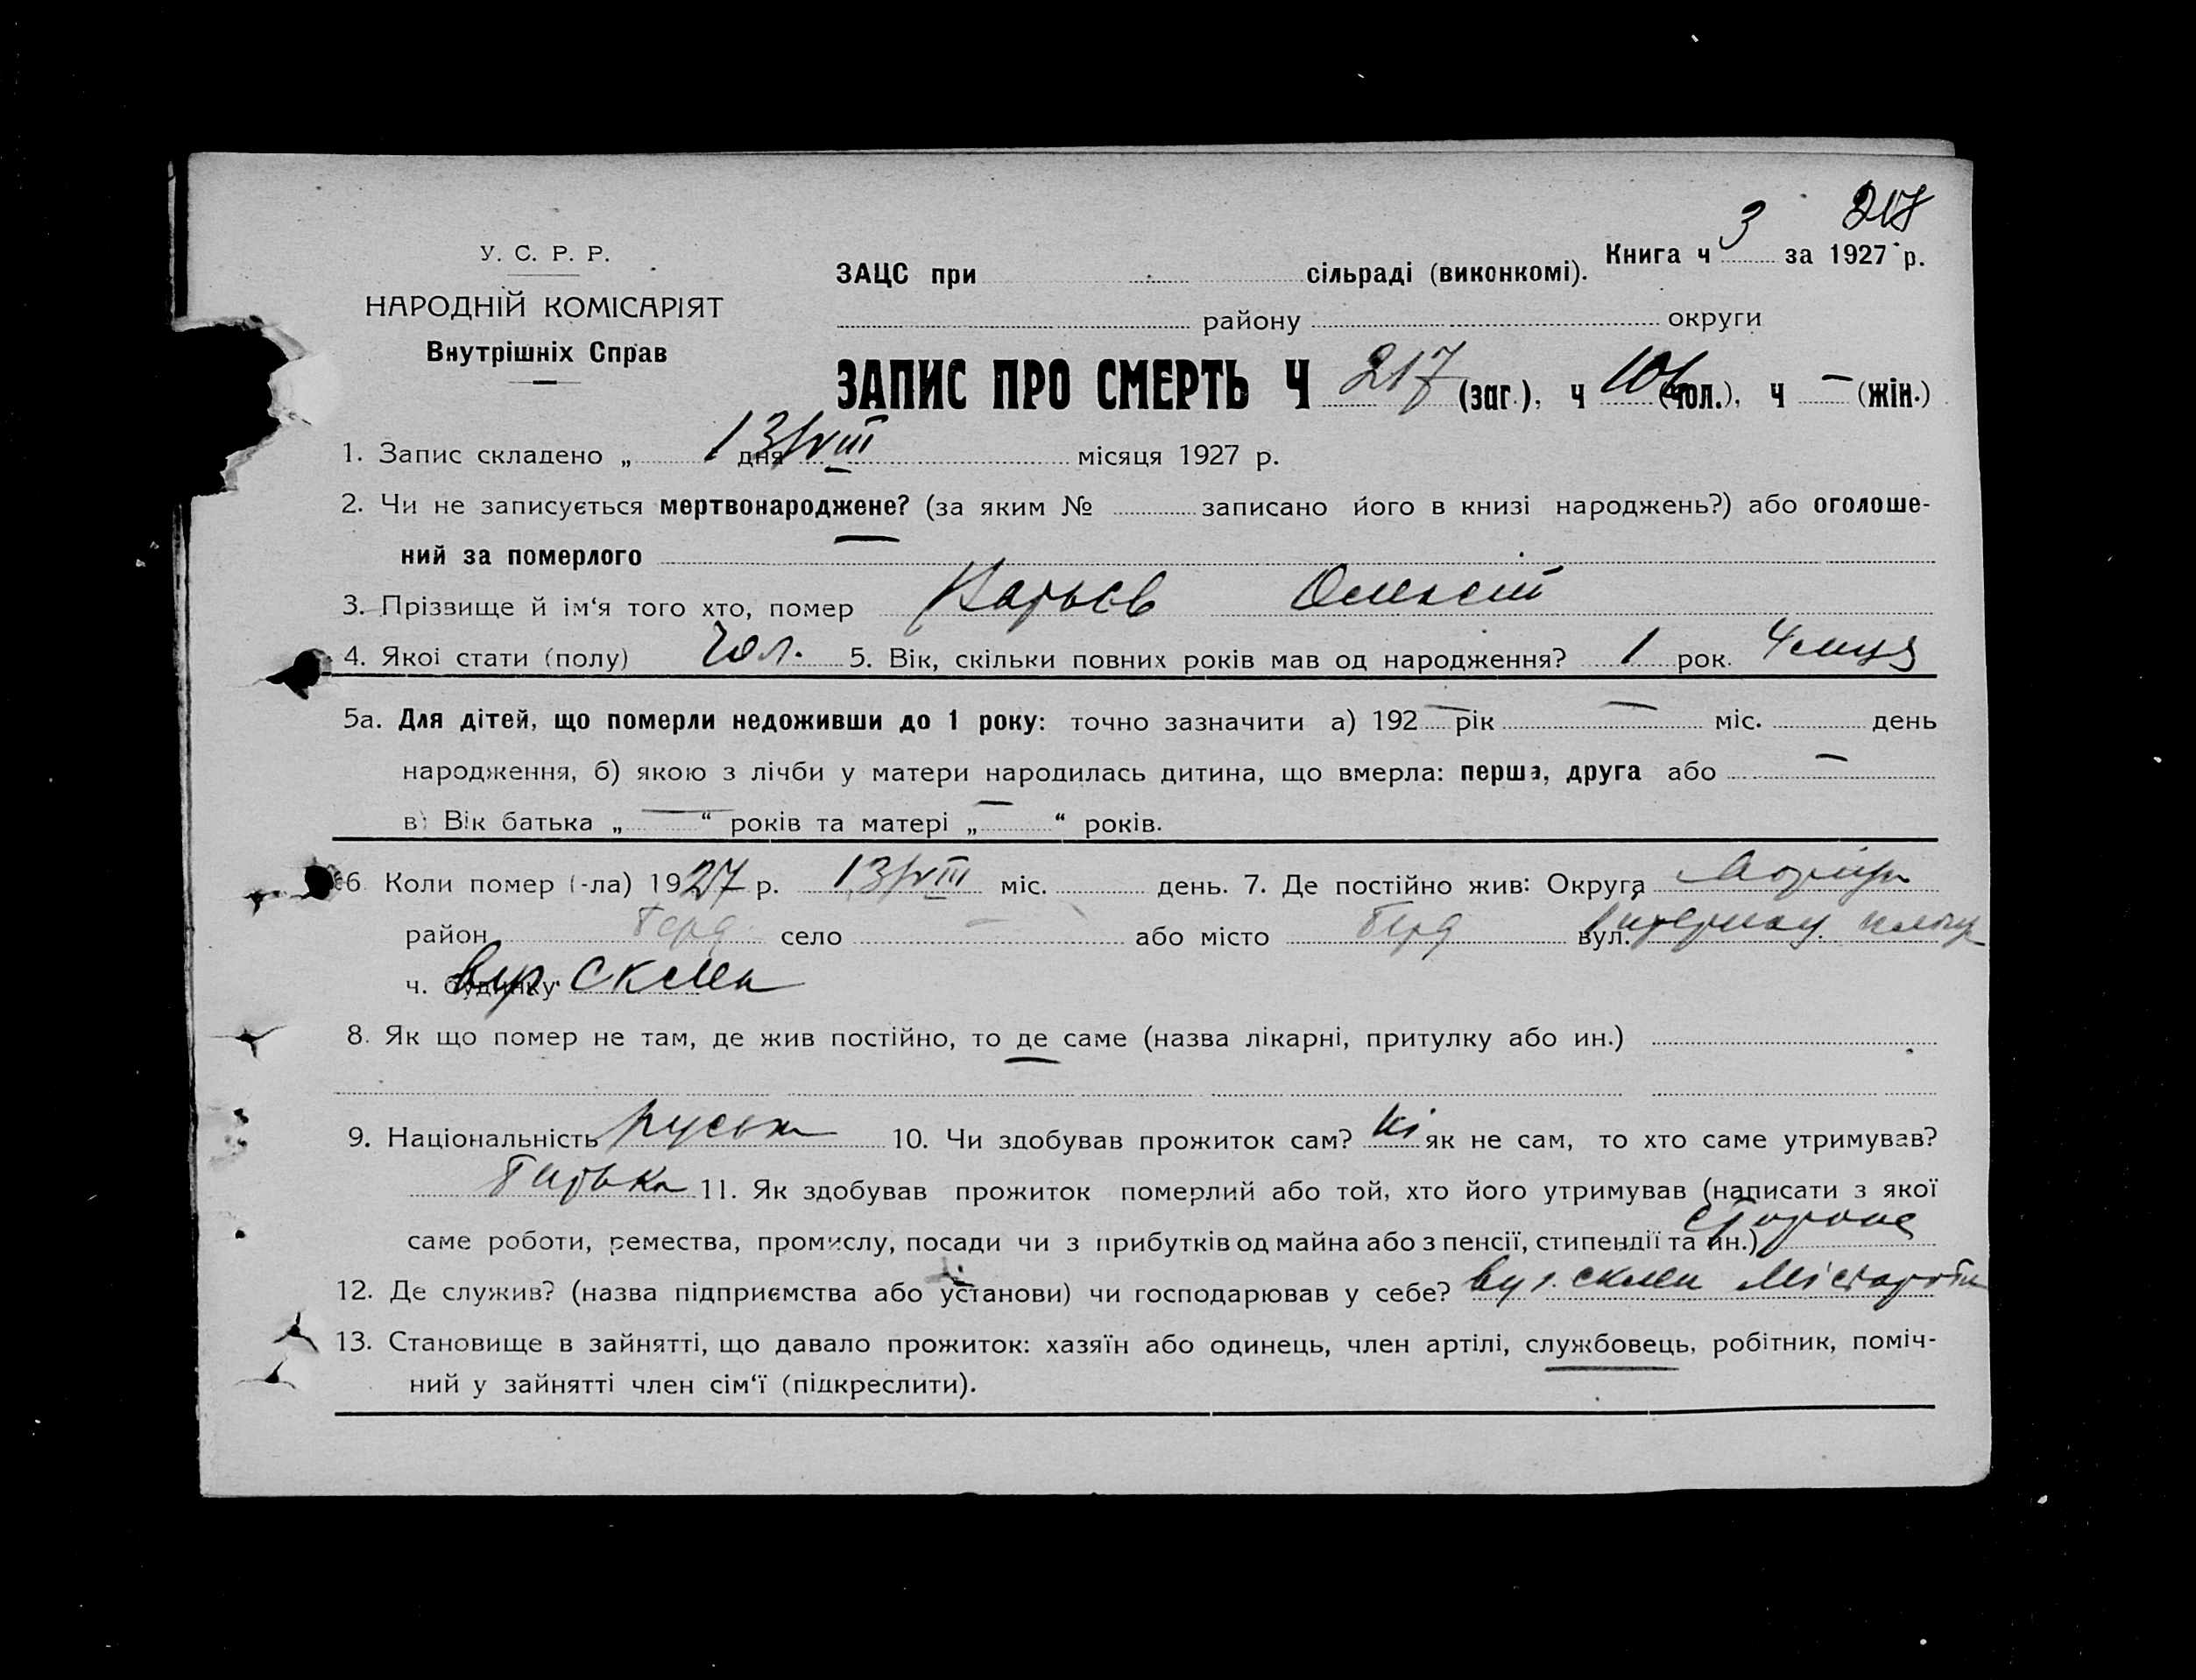 217
У. С. Р. Р.
НАРОДНІЙ КОМІСАРІЯТ
Внутрішніх Справ
Книга ч 3 за 1927 р.
ЗАЦС при сільраді (виконкомі).
району округи
ЗАПИС ПРО СМЕРТЬ Ч 217 (заг.), ч 106 (чол.), ч — (жін.)
1. Запис складено „ 13/VIII дня місяця 1927 р.
2. Чи не записується мертвонароджене? (за яким № записано його в книзі народжень?) або оголоше-
ний за померлого —
3. Прізвище й ім‘я того хто, помер Олексій
4. Якої стати (полу) Чол. 5. Вік, скільки повних років мав од народження? 1 рок. 4 місця
5а. Для дітей, що померли недоживши до 1 року: точно зазначити а) 192 — рік — міс. день
народження, б) якою з лічби у матери народилась дитина, що вмерла: перша, друга або —
в) Вік батька „ — “ років та матері „ — “ років.
6 Коли помер (-ла) 1927 р. 13/VIII міс. день. 7. Де постійно жив: Округа
район Берд село — або місто Берд вул.
ч. будинку
8. Як що помер не там, де жив постійно, то де саме (назва лікарні, притулку або ин.) —
9. Національність руськ 10. Чи здобував прожиток сам? Ні як не сам, то хто саме утримував?
батько 11. Як здобував прожиток померлий або той, хто його утримував (написати з якої
саме роботи, ремества, промислу, посади чи з прибутків од майна або з пенсії, стипендії та ин.) сторож
12. Де служив? (назва підприємства або установи) чи господарював у себе?
13. Становище в зайнятті, що давало прожиток: хазяїн або одинець, член артілі, службовець, робітник, поміч-
ний у зайнятті член сім‘ї (підкреслити).